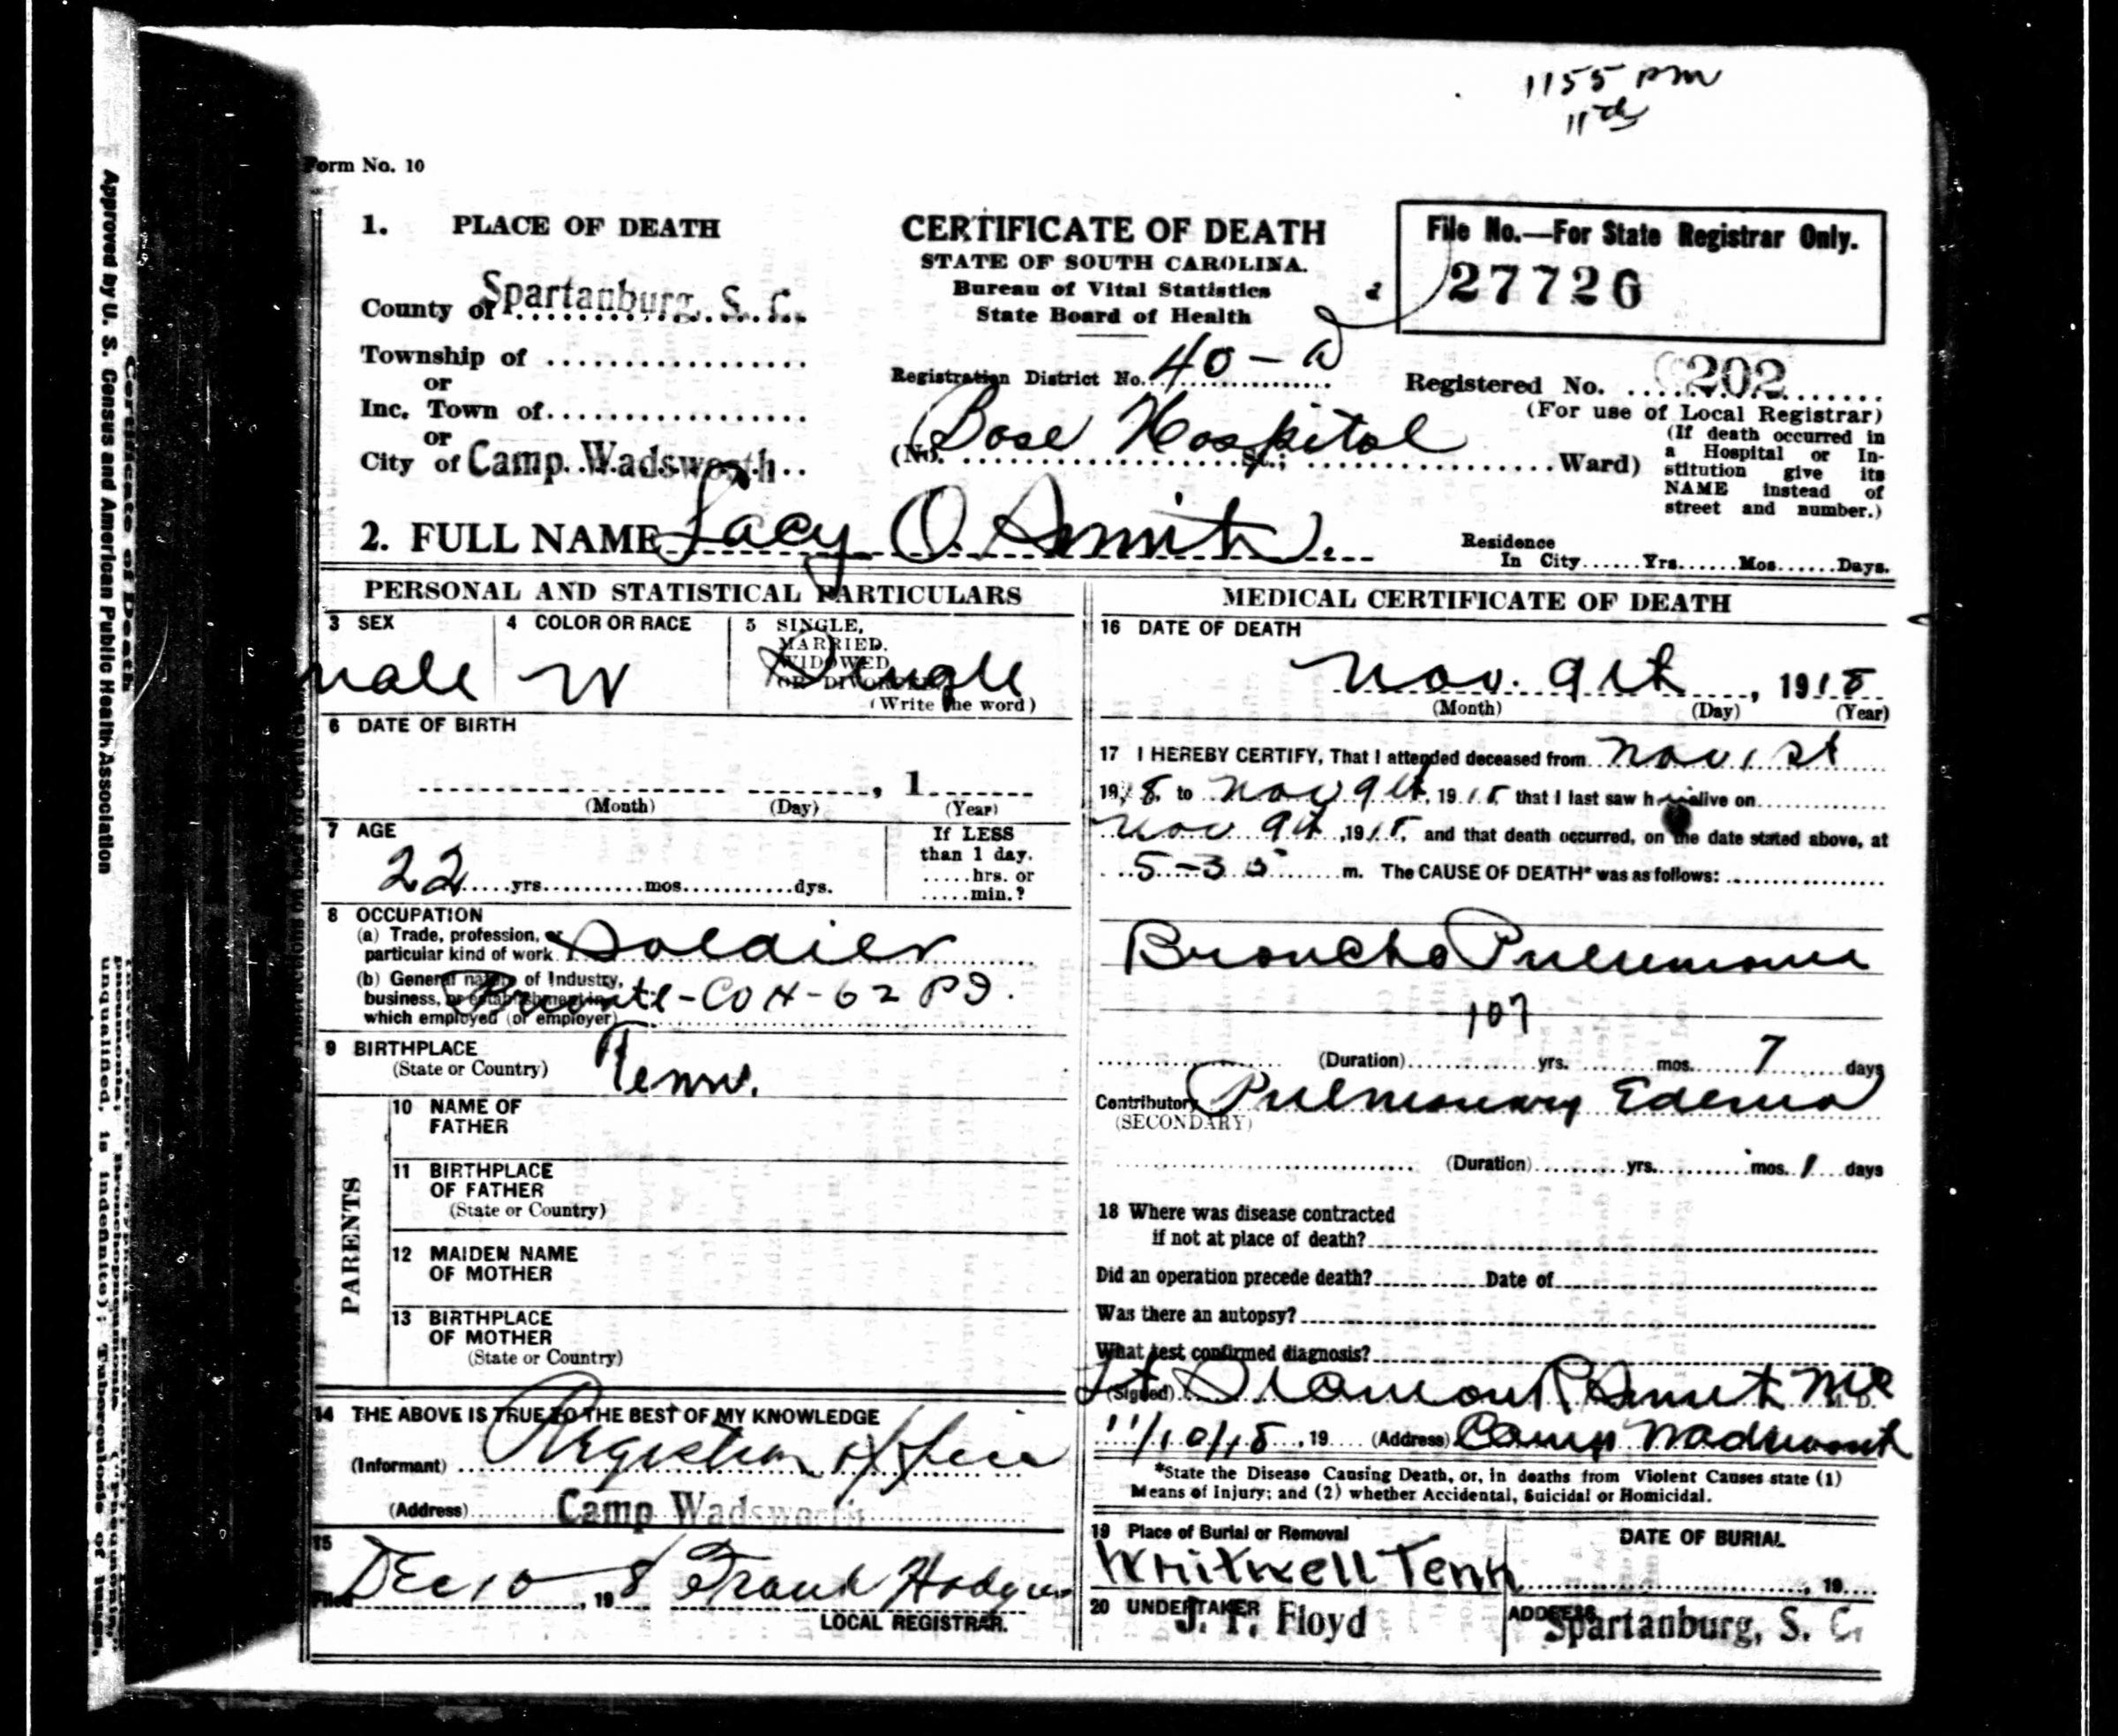 1155 pm
11th
Form No. 10
1. PLACE OF DEATH
County of Spartanburg, S. C.
Township of
or
Inc. Town of
or
City of Camp Wadsworth
CERTIFICATE OF DEATH
STATE OF SOUTH CAROLINA.
Bureau of Vital Statistics
State Board of Health
Registration District No. 40-a
(No. Base Hospital St.; Ward)
File No.—For State Registrar Only.
27726
Registered No. 202
(For use of Local Registrar)
(If death occurred in
a Hospital or In-
stitution give its
NAME instead of
street and number.)
2. FULL NAME Lacy O. Smith.
Residence
In City......Yrs......Mos......Days.
PERSONAL AND STATISTICAL PARTICULARS
3 SEX
male
4 COLOR OR RACE
W
5 SINGLE,
MARRIED,
WIDOWED
OR DIVORCED
Single
(Write the word)
6 DATE OF BIRTH
, 1
(Month) (Day) (Year)
7 AGE
22 yrs. mos. dys.
If LESS
than 1 day.
.....hrs. or
.....min.?
8 OCCUPATION
(a) Trade, profession, or
particular kind of work Soldier
(b) General nature of Industry,
business, or establishment in
which employed (or employer)
Private-Co H-62 P I.
9 BIRTHPLACE
(State or Country) Tenn.
PARENTS
10 NAME OF
FATHER
11 BIRTHPLACE
OF FATHER
(State or Country)
12 MAIDEN NAME
OF MOTHER
13 BIRTHPLACE
OF MOTHER
(State or Country)
14 THE ABOVE IS TRUE TO THE BEST OF MY KNOWLEDGE
(Informant) Registrar Office
(Address) Camp Wadsworth
15
Filed Dec 10, 19 8 Frank Hodges
LOCAL REGISTRAR.
MEDICAL CERTIFICATE OF DEATH
16 DATE OF DEATH
Nov. 9th, 1918
(Month) (Day) (Year)
17 I HEREBY CERTIFY, That I attended deceased from Nov 1st
1918, to Nov 9th, 1918, that I last saw him alive on
Nov 9th, 1918, and that death occurred, on the date stated above, at
5-35 m. The CAUSE OF DEATH* was as follows:
Broncho Pneumonia
107
(Duration) yrs. mos. 7 days
Contributory Pulmonary Edema
(SECONDARY)
(Duration) yrs. mos. 1 days
18 Where was disease contracted
if not at place of death?
Did an operation precede death? Date of
Was there an autopsy?
What test confirmed diagnosis?
(Signed) Lt. R Smith MC M. D.
11/10/18, 19 (Address) Camp Wadsworth
*State the Disease Causing Death, or, in deaths from Violent Causes state (1)
Means of Injury; and (2) whether Accidental, Suicidal or Homicidal.
19 Place of Burial or Removal
Whitwell Tenn
DATE OF BURIAL
, 19
20 UNDERTAKER
J. F. Floyd
ADDRESS
Spartanburg, S. C.
Certificate of Death
Approved by U. S. Census and American Public Health Association